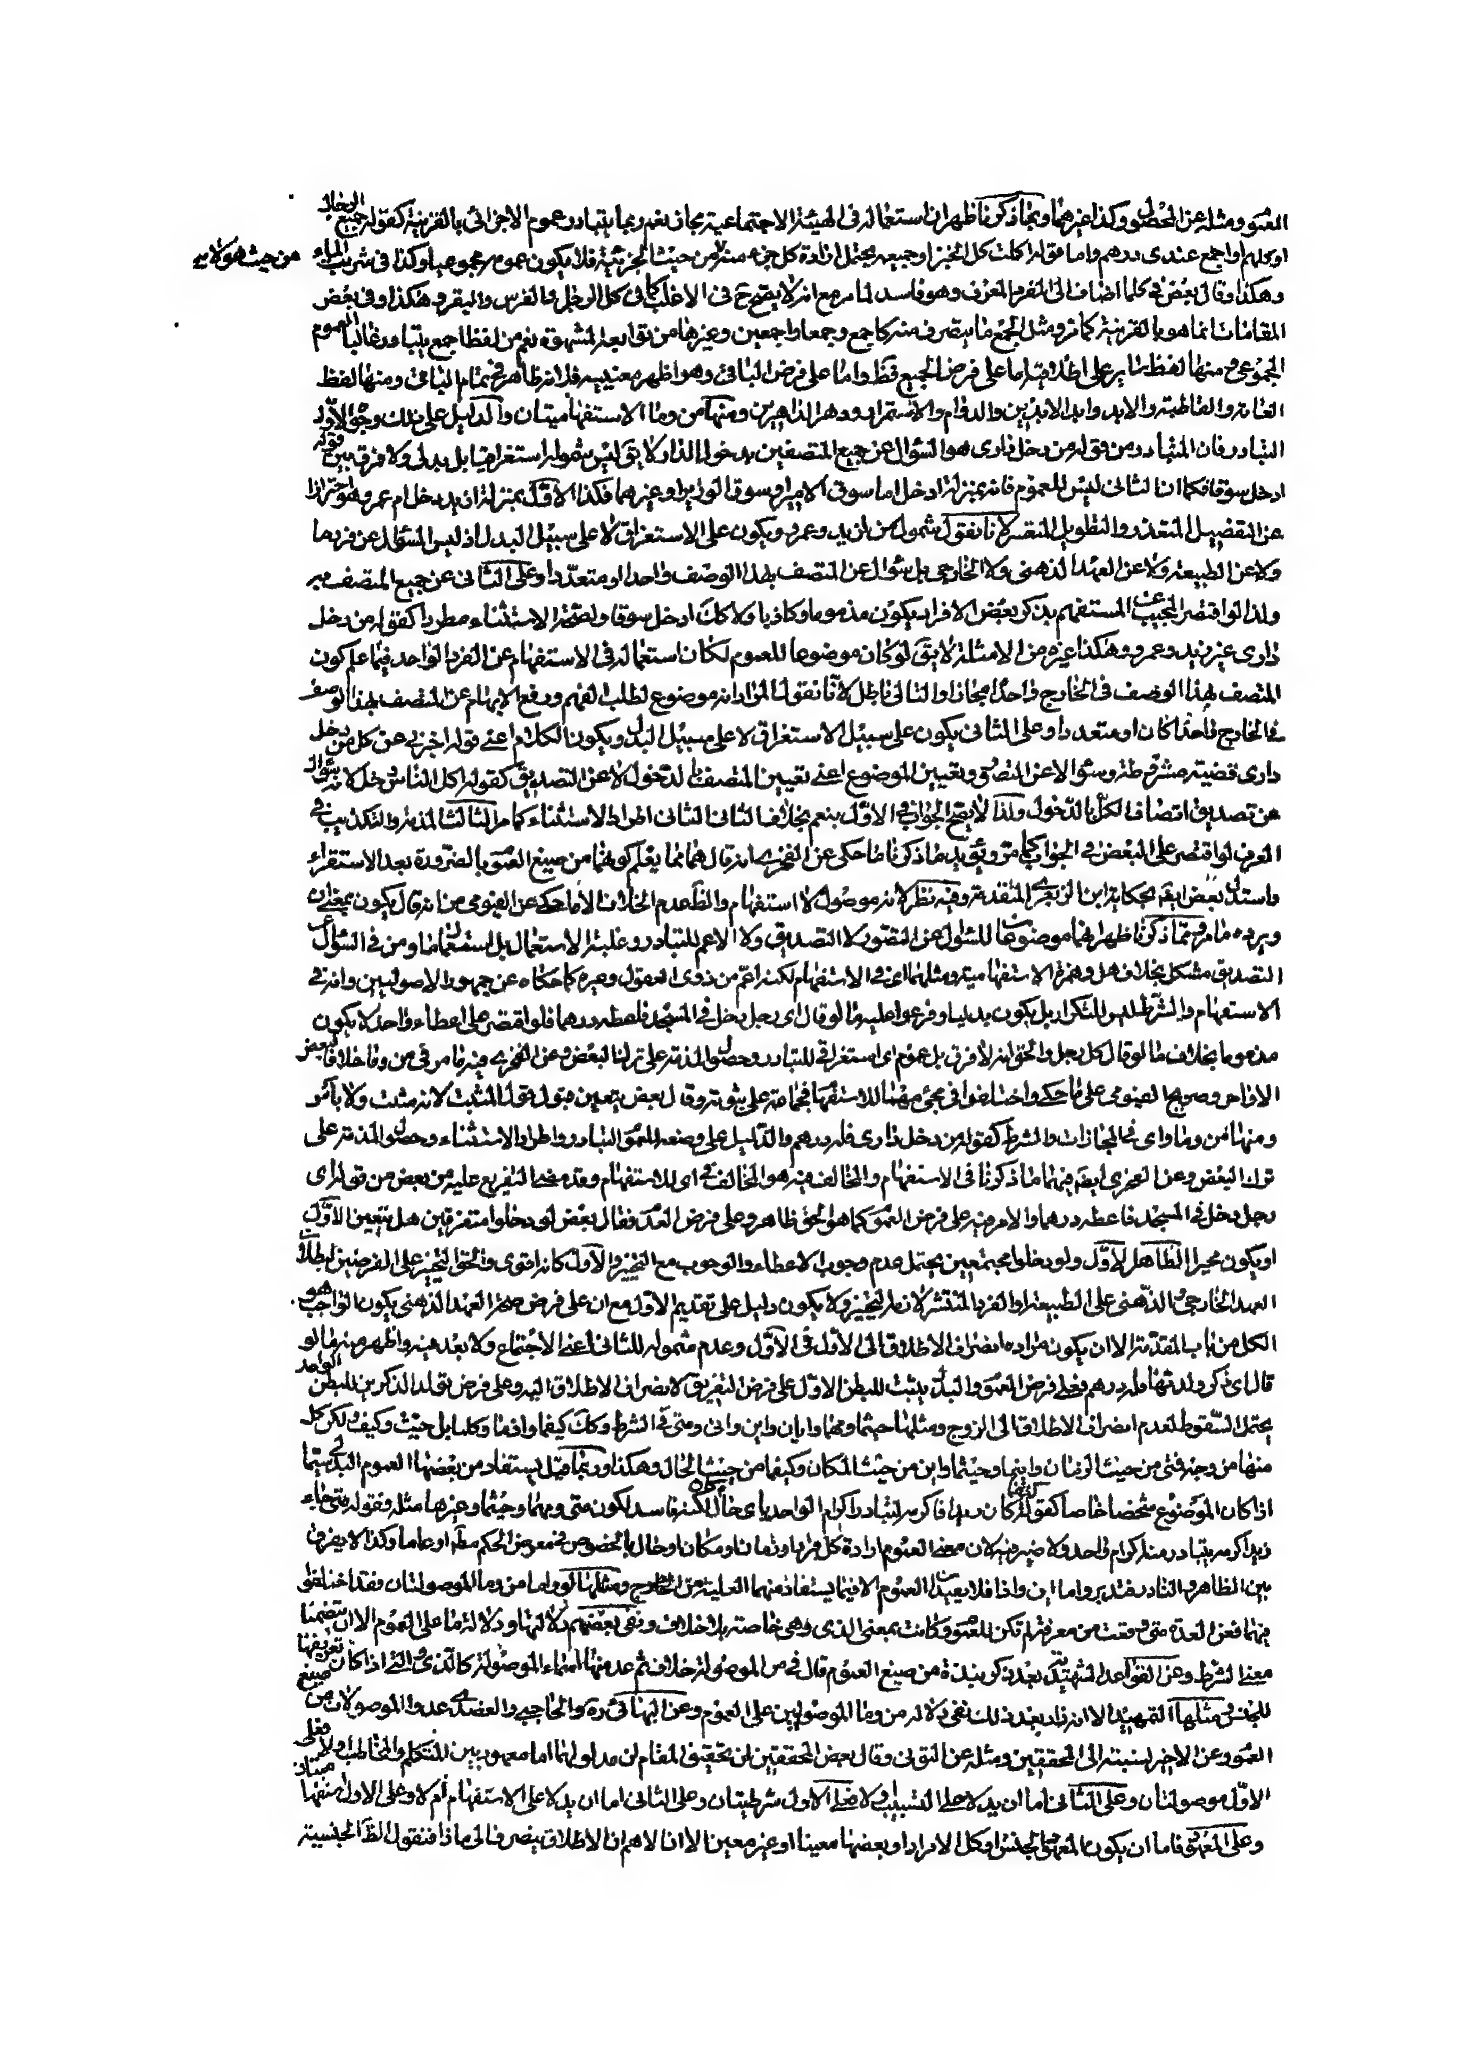 العموم ومثله عن المحصول وكذا غيرهما وبما ذكرنا ظهر ان استعماله فى الهيئة الاجتماعية مجاز نعم ربما يتبادر عموم الاجزائى بالقرينة كقوله جميع الرجال
او كلهم او اجمع عندى درهم واما قوله اكلت كل الخبز او جميعه يحتمل ارادة كل جزء منه لا من حيث الجزئية فلا يكون عمومه مجموعيا وكذا فى شربت الماء
من حيث هو كلا
وهكذا وقال بعض فى كلما اضاف الى المفرد المعرف وهو فاسد لما مر مع انه لا يصح فى الاغلب كما فى كل الرجل والفرس والبقر وهكذا وفى بعض
المقامات انما هو بالقرينة كما مر ومثل الجمع ما يتصرف منه كاجمع وجمعا واجمعين وغيرها من توابعه المشهورة نعم من لفظ اجمع يتبادر غالبا العموم
المجموعى ومنها لفظ سائر على اطلاقيه اما على فرض الجميع فظ واما على فرض الباقى وهو اظهر معنييه فلانه ظاهر فى تمام الباقى ومنها لفظ
العامة والقاطبة والابد وابد الابدين والدوام والاستمرار ودهر الداهرين ومنها من وما الاستفهاميتان والدليل على ذلك وجوه الاول
التبادر فان المتبادر من قوله من دخل دارى هو السؤال عن جميع المتصفين بدخول الدار لا يق ليس شموله استغراقيا بل بدلى ولا فرق بين قوله
ادخل سوقا فكما ان الثانى ليس للعموم فانه بمنزلة ادخل اما سوق الامير او سوق الوزير او غيرهما فكذا الاول بمنزلة ازيد دخل ام عمرو هو احترازا
عن التفصيل المتعذر والتطويل المتعسر لانا نقول شمول من لزيد وعمرو ويكون على الاستغراق لا على سبيل البدل اذ ليس السؤال عن فرد ما
ولا عن الطبيعة ولا عن العهد الذهنى ولا الخارجى بل سؤال عن المتصف بهذا الوصف واحدا او متعددا وعلى الثانى عن جميع المتصف به
ولذا لو اقتصر المجيب عن المستفهم بذكر بعض الافراد يكون مذموما وكاذبا ولا كك ادخل سوقا ولصحة الاستثناء مطردا كقوله من دخل
دارى غير زيد وعمرو وهكذا غيره من الامثلة لا يق لو كان موضوعا للعموم لكان استعماله فى الاستفهام عن الفرد الواحد فيما علم كون
المتصف بهذا الوصف فى الخارج واحدا مجازا والتالى باطل لانا نقول المراد انه موضوع لطلب الفهم ورفع الابهام عن المتصف بهذا الوصف
فى الخارج واحدا كان او متعددا وعلى الثانى يكون على سبيل الاستغراق لا على سبيل البدل ويكون الكلام اعنى قوله اخبرنى عن كل من دخل
دارى قضية مشروطة وسؤالا عن التصور وتعيين الموضوع اعنى تعيين المتصف بالدخول لا عن التصديق كقوله اكل الناس دخل لانه سؤال
عن تصديق اتصاف الكل بالدخول ولذا لا يصح الجواب فى الاول بنعم بخلاف الثانى الثانى اطراد الاستثناء كما مر الثالث المذمة والتكذيب فى
العرف لو اقتصر على البعض فى الجواب كما مر ويؤيد ما ذكرنا ما حكى عن الفخرى انه قال هما مما يعلم كونهما من صيغ العموم بالضرورة بعد الاستقراء
واستدل بعض ايضا بحكاية ابن الزبعرى المتقدمة وفيه نظر لانه موصول لا استفهام والظ عدم الخلاف الا ما حكى عن الفيومى من انه قال يكون بمعنى ان
ويرده ما مر ومما ذكرنا ظهر انهما موضوعان للسؤال عن التصور لا التصديق ولا الاعم للتبادر وغلبة الاستعمال بل استعمال ما ومن فى السؤال عن
التصديق مشكل بخلاف هل وهمزة الاستفهامية ومثلهما اى فى الاستفهام لكنه اعم من ذوى العقول وغيره كما حكاه عن جمهور الاصوليين وانه فى
الاستفهام والشرط ليس للتكرار بل يكون بدليا وفرعوا عليه ما لو قال اى رجل دخل فى المسجد فاعطه درهما فلو اقتصر على اعطاء واحد لا يكون
مذموما بخلاف ما لو قال كل رجل والحق انه لا فرق بل عموم اى استغراقى للتبادر وحصول المذمة على ترك البعض وعن الفخرى فيه ما مر فى من وما خلافا لبعض
الاواخر وصريح الفيومى على ما حكى واختلفوا فى مجئ مهما للاستفهام فجماعة على ثبوته وقال بعض يتعين قبول قول المثبت لانه مثبت ولا باس
ومنها من وما واى فى المجازات والشرط كقوله من دخل دارى فله درهم والدليل على وضعه للعموم التبادر واطراد الاستثناء وحصول المذمة على
ترك البعض وعن الفخرى ايضا فيهما ما ذكرنا فى الاستفهام والمخالف فيه هو المخالف فى اى للاستفهام وقد مضى التفريع عليه من بعض من قوله اى
رجل دخل فى المسجد فاعطه درهما والامر فيه على فرض العموم كما هو الحق ظاهر وعلى فرض العدم فقال بعض لو دخلوا متفرقين هل يتعين الاول
او يكون مخيرا الظاهر الاول ولو دخلوا مجتمعين يحتمل عدم وجوب الاعطاء والوجوب مع التخيير والاول كانه اقوى والحق التخيير على الفرضين لبطلان
العهد الخارجى والذهنى على الطبيعة او الفرد المنتشر لا نامر التخيير ولا يكون دليل على تقديم الاول مع ان على فرض صحة العهد الذهنى يكون الواجب هو
الكل من باب المقدمة الا ان يكون مراده انصراف الاطلاق الى الاول فى الاول وعدم شموله للثانى اعنى الاجتماع ولا بعد فيه واظهر منه ما لو
قال اى ذكر ولدتها فله درهم فعلى فرض العموم والبدل يثبت للبطن الاول على فرض التفريق لانصراف الاطلاق اليه وعلى فرض تولد الذكرين للبطن الواحد
يحتمل السقوط لعدم انصراف الاطلاق الى الزوج ومثلها حيثما ومهما وايان واين وانى ومتى فى الشرط وكك كيفما واذما وكلما بل حيث وكيف ولكن كل
منها من وجه فمتى من حيث الزمان واينما وحيثما واين من حيث المكان وكيفما من حيث الحال وهكذا وربما قيل يستفاد من بعضها العموم البدلى سيما
اذا كان الموضوع شخصا خاصا كقوله كيفما كان زيدا فاكرمه لتبادر اكرام الواحد باى حال كان لكنه فاسد لكون متى ومهما وحيثما وغيرها مثله وقوله متى جاء
زيدا كرمه يتبادر منه اكرام واحد ولا ضير فيه لان معنى العموم ارادة كل فرد او زمان او مكان او حال بالخصوص فى معرض الحكم مط او عاما وكذا لا يفرق
بين الظاهر والنادر فتدبر واما اين واذا فلا يفيدان العموم الا فيما يستفاد منهما العلية من الخارج ومثلها لو واما من وما الموصولتان فقد اختلفوا
فيهما فعن العدة متى وقعت من معرفة لم تكن للعموم وكانت بمعنى الذى وهى خاصة بلا خلاف ونفى بعضهم دلالتها ودلالة ما على العموم الا ان يتضمنا
معنى الشرط وعن القواعد الشهيدية بعد ذكر نبذة من صيغ العموم قال فى من الموصولة خلاف ثم عد منها اسماء الموصولة كالذى والتى اذا كان تعريفها
للجنس ومثلها التمهيد الا انه زاد بعد ذلك نفى دلالة من وما الموصولين على العموم وعن البهائى ره والحاجبى والعضدى عدوا الموصولات من صيغ
العموم وعن الاخير نسبته الى المحققين ومثله عن التونى وقال بعض المحققين ان تحقيق المقام ان مدلولهما اما معهود بين المتكلم والمخاطب او لا فعلى
الاول موصولتان وعلى الثانى اما ان يدلا على التسبيب او لا فعلى الاول شرطيتان وعلى الثانى اما ان يدلا على الاستفهام ام لا وعلى الاول
وعلى المعهود فاما ان يكون المعهود الجنس او كل الافراد او بعضها معينا او غير معين الا ان الاهم ان الاطلاق ينصرف الى ماذا فنقول الظ الجنسية